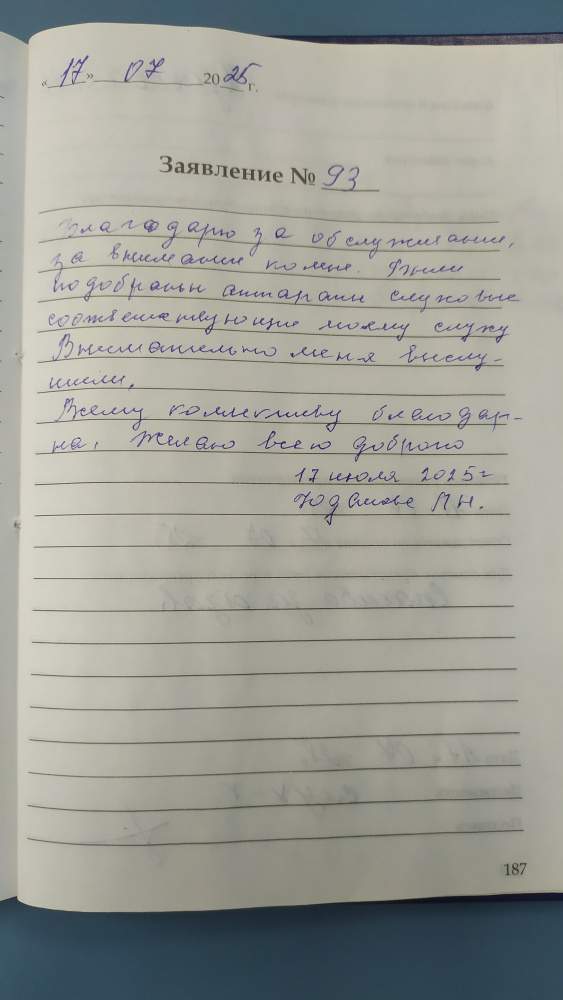 «17» 07 2025 г.
Заявление № 93
Благодарю за обслуживание,
за внимание ко мне. Были
подобраны аппараты слуховые
соответствующие моему слуху
Внимательно меня выслу-
шали.
Всему коллективу благодар-
на, Желаю всего доброго
17 июля 2025 г
П.Н.
187